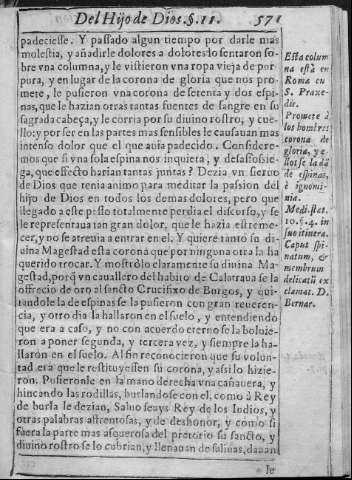 Del Hijo de Dios. §. 11. 571
padeciesse. Y passado algun tiempo por darle mas
molestia, y añadirle dolores a dolores lo sentaron so-
bre vna columna, y le vistieron vna ropa vieja de pur-
pura, y en lugar de la corona de gloria que nos pro-
mete, le pusieron vna corona de setenta y dos espi-
nas, que le hazian otras tantas fuentes de sangre en su
sagrada cabeça, y le corria por su diuino rostro, y cue-
llo: y por ser en partes mas sensibles le causauan mas
intenso dolor que el que auia padecido. Considere-
mos que si vna sola espina nos inquieta, y desassosie-
ga, que effecto harian tantas juntas? Dezia vn sieruo
de Dios que tenia animo para meditar la passion del
hijo de Dios en todos los demas dolores, pero que
llegado a este passo totalmente perdia el discurso, y se
le representaua tan gran dolor, que le hazia estreme-
cer, y no se atreuia a entrar en el. Y quiere tanto su di-
uina Magestad esta corona que por ninguna otra la ha
querido trocar. Y mostrolo claramente su diuina Ma-
gestad, porq̃ vn cauallero del habito de Calatraua se la
offrecio de oro al sancto Crucifixo de Burgos, y qui-
tandole la de espinas se la pusieron con gran reueren-
cia, y otro dia la hallaron en el suelo, y entendiendo
que era a caso, y no con acuerdo eterno se la boluie-
ron a poner segunda, y tercera vez, y siempre la ha-
llaron en el suelo. Al fin reconocieron que su volun-
tad era que le restituyessen su corona, y assi lo hizie-
ron. Pusieronle en la mano derecha vna cañauera, y
hincando las rodillas, burlandose con el, como à Rey
de burla le dezian, Saluo seays Rey de los Iudios, y
otras palabras affrentosas, y de deshonor, y como si
fuera la parte mas asquerosa del pretorio su sancto, y
diuino rostro se lo cubrian, y llenauan de saliuas, dauan
le
Esta colum
na està en
Roma en
S. Praxe-
dis.
Promete à
los hombres
corona de
gloria, y e-
llos se la dã
de espinas,
è ignomi-
nia.
10. §. 4. in
suo itinera.
Caput spi-
natum, &
membrum
delicatũ ex
clamat. D.
Bernar.